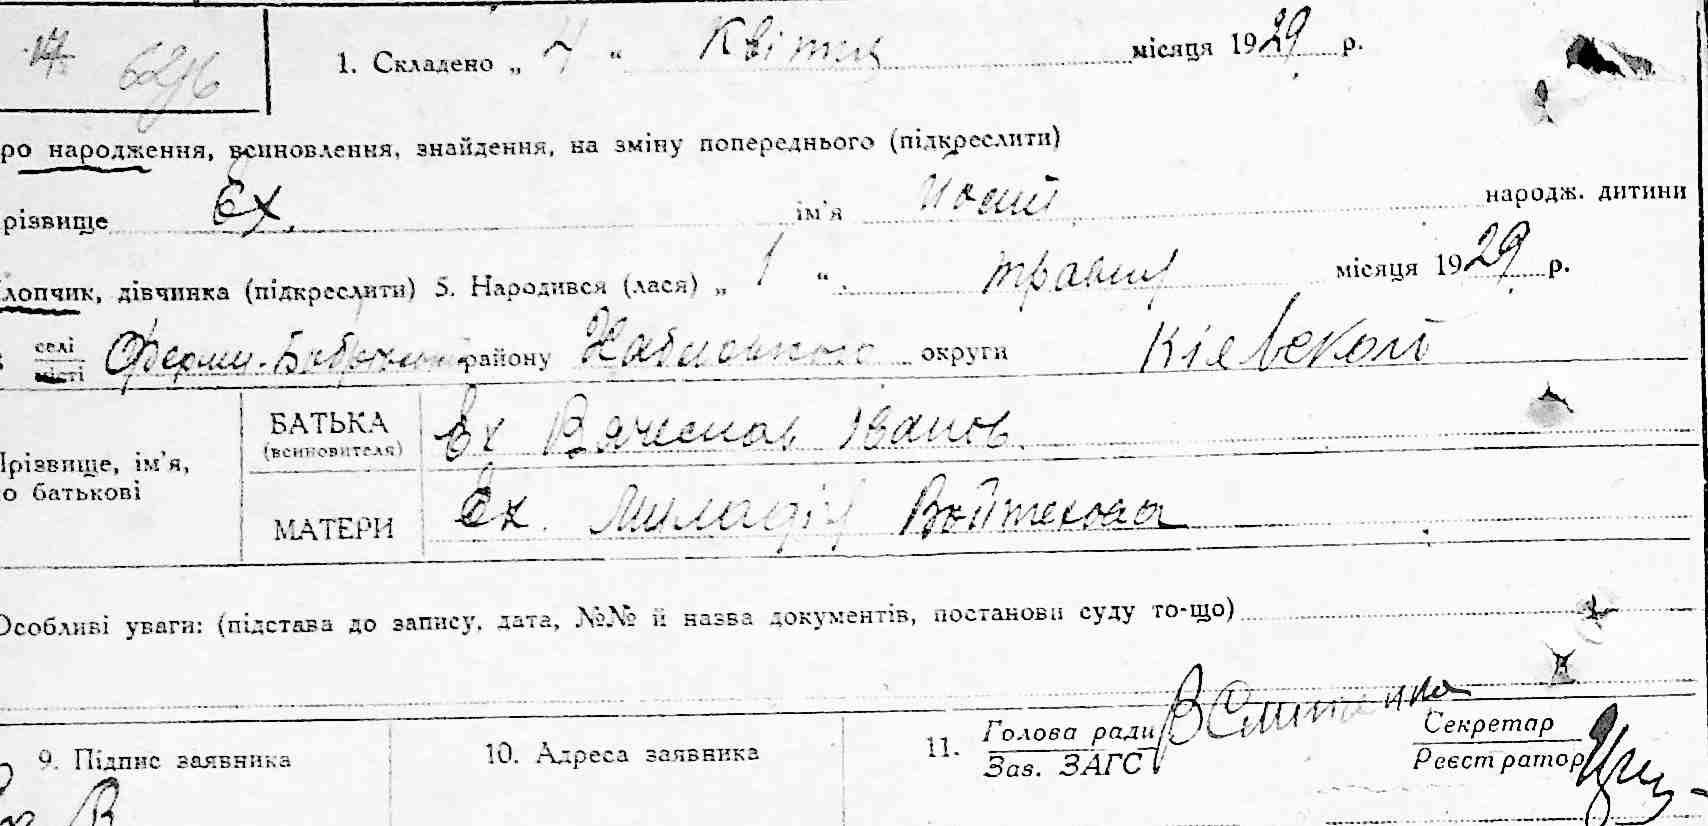 1. Складено „ 4 “ Квітня місяця 1929 р.
ро народження, всиновлення, знайдення, на зміну попереднього (підкреслити)
різвище Ех. ім'я Йосип народж. дитини
лопчик, дівчинка (підкреслити) 5. Народився (лася) „ 1 “ травня місяця 1929 р.
селі
місті
району округи Кіевской
БАТЬКА
(всиновителя)
Ех Вячеслав Іванов.
Прізвище, ім'я,
о батькові
МАТЕРИ
Ех. Войтехова
Особливі уваги: (підстава до запису, дата, №№ й назва документів, постанови суду то-що)
9. Підпис заявника
10. Адреса заявника
11. Голова ради
Зав. ЗАГС
Секретар
Реєстратор